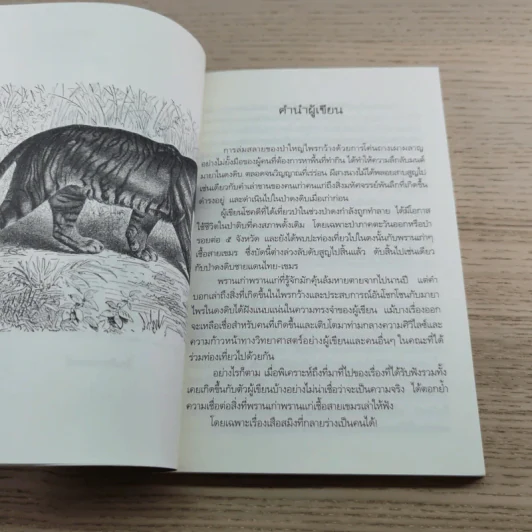 คำนำผู้เขียน
การล่มสลายของป่าใหญ่ไพรกว้างด้วยการโค่นถางเผาผลาญ
อย่างไม่ยั้งมือของผู้คนที่ต้องการหาพื้นที่ทำกิน ได้ทำให้ความลึกลับมนต์
มายาในดงดิบ ตลอดจนวิญญาณที่เร่ร่อน ผีสางนางไม้ได้พลอยสาบสูญไป
เช่นเดียวกับคำเล่าขานของคนเก่าคนแก่ถึงสิ่งมหัศจรรย์พันลึกที่เกิดขึ้น
ดำรงอยู่ และดำเนินไปในป่าดงดิบเมื่อเก่าก่อน
ผู้เขียนโชคดีที่ได้เที่ยวป่าในช่วงป่าดงกำลังถูกทำลาย ได้มีโอกาส
ใช้ชีวิตในป่าดิบที่คงสภาพดั้งเดิม โดยเฉพาะป่าภาคตะวันออกหรือป่า
รอยต่อ ๕ จังหวัด และยังได้พบปะท่องเที่ยวไปในดงนั้นกับพรานเก่าๆ
เชื้อสายเขมร ซึ่งบัดนี้ต่างล่วงลับดับสูญไปสิ้นแล้ว ดับสิ้นไปเช่นเดียว
กับป่าดงดิบชายแดนไทย-เขมร
พรานเก่าพรานแก่ที่รู้จักมักคุ้นล้มหายตายจากไปนานปี แต่คำ
บอกเล่าถึงสิ่งที่เกิดขึ้นในไพรกว้างและประสบการณ์อันโชกโชนกับมายา
ไพรในดงดิบได้ฝังแนบแน่นในความทรงจำของผู้เขียน แม้บางเรื่องออก
จะเหลือเชื่อสำหรับคนที่เกิดขึ้นและเติบโตมาท่ามกลางความศิวิไลซ์และ
ความก้าวหน้าทางวิทยาศาสตร์อย่างผู้เขียนและคนอื่นๆ ในคณะที่ได้
ร่วมท่องเที่ยวไปด้วยกัน
อย่างไรก็ตาม เมื่อพิเคราะห์ถึงที่มาที่ไปของเรื่องที่ได้รับฟังรวมทั้ง
เคยเกิดขึ้นกับตัวผู้เขียนบ้างอย่างไม่น่าเชื่อว่าจะเป็นความจริง ได้ตอกย้ำ
ความเชื่อต่อสิ่งที่พรานเก่าพรานแก่เชื้อสายเขมรเล่าให้ฟัง
โดยเฉพาะเรื่องเสือสมิงที่กลายร่างเป็นคนได้!